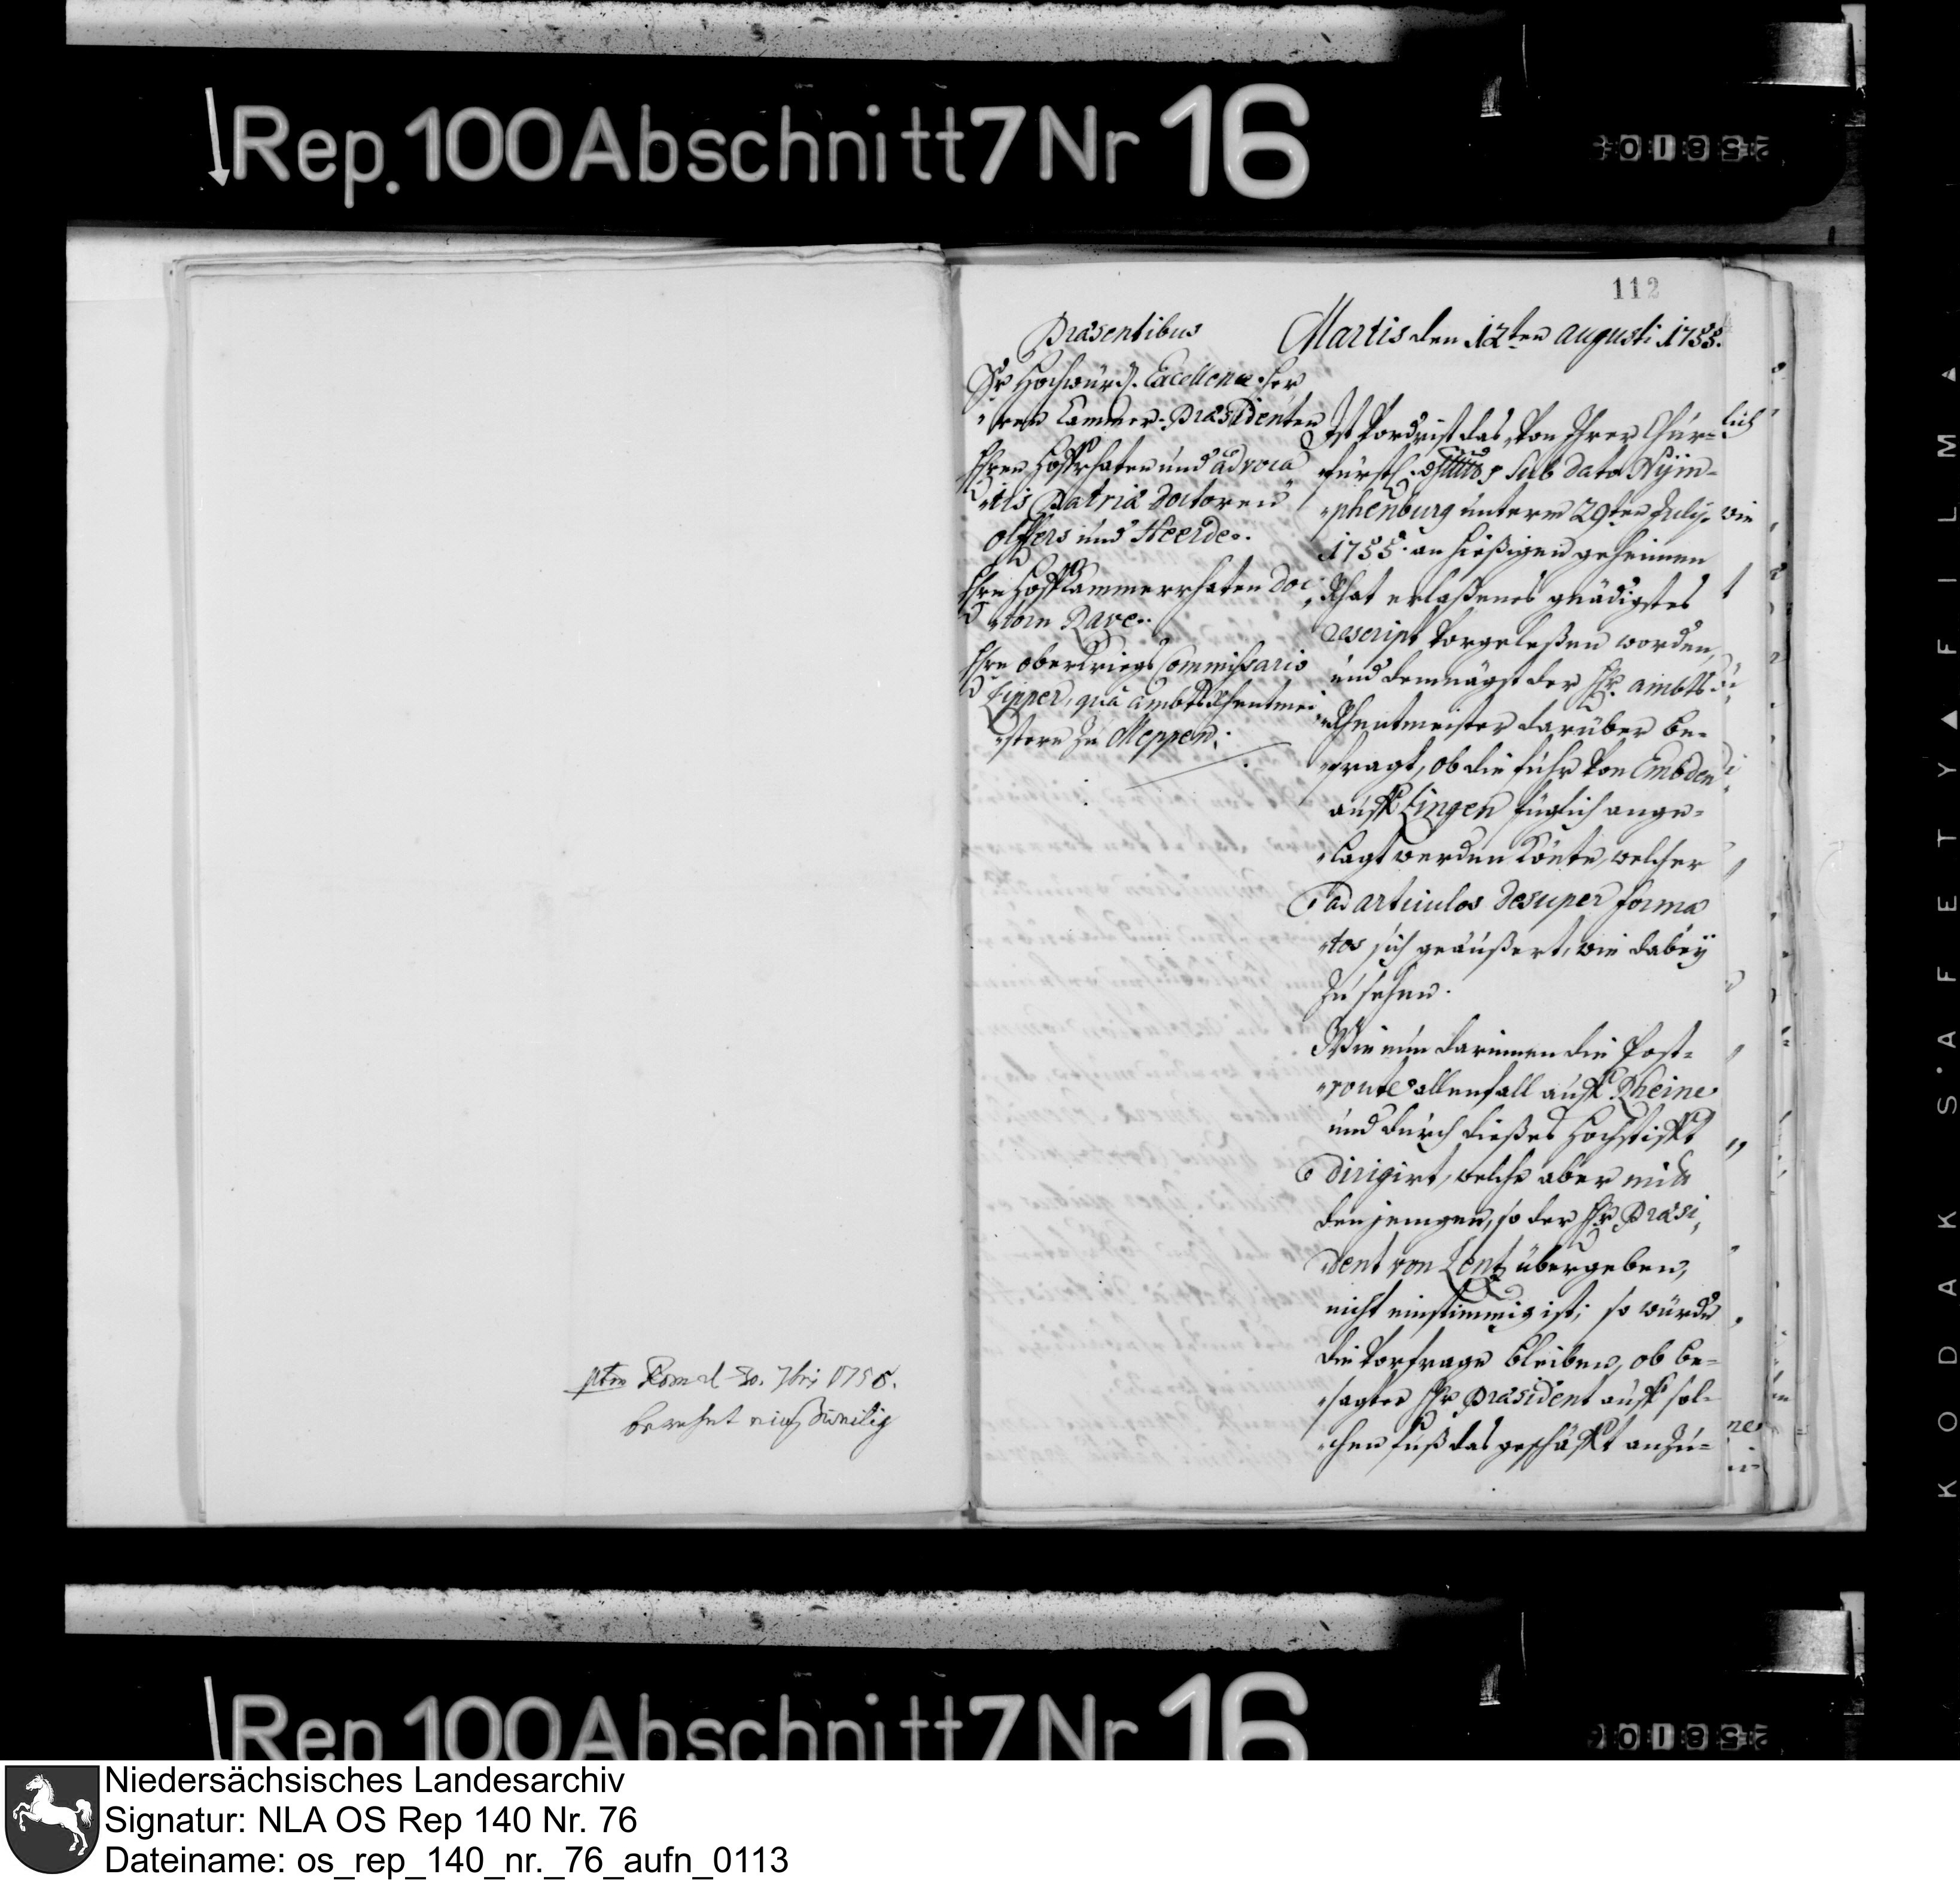 Rep. 100 Abschnitt 7 Nr 16
112
Præsentibus
Sr Hochwürd. Excellence Her
ren Cammer-Præsidenten
Hren Hoffrhaten und advoca
tis Patriæ Doctoren
Olfers und Heerde.
Hren Hoffkammerrhaten Doc
torn Rave.
Hrn ober Kriegs Commissario
Lipper, qua ambts Rhentmei
stern zu Meppen.
Martis den 12ten augusti 1755.
Ist Vordrist das, Von Ihrer Chur-
fürstl. sub dato Nÿm-
phenburg unterm 29ten July
1755. an hießigen geheimen
Rhat erlaßenes gnädigstes
Rescript Vorgeleßen worden,
und demnägst der Hr. ambts
Rhentmeister darüber be-
fragt, ob die fuhr Von Embden
auff Lingen füglich ange-
lagt werden könte, welcher
ad articulos desuper forma
tos sich geäußert, wie dabeÿ
zu sehen.
Wie nun darinnen die Post-
route allenfall auff Rheine
und durch dießes Hochstifft
dirigirt, welche aber mit
denjenigen, so der Hr. Præsi
dent von Lentz übergeben,
nicht einstimmig ist; so würde
die Vorfrage bleiben, ob be-
sagter Hr Præsident auff sol-
chen fuß das geschäfft anzu-
ptum Rom d 30. 7bris 1758.
beruhet einßweilig
KODAK · SAFETY FILM
Rep 100 Abschnitt 7 Nr 16
Niedersächsisches Landesarchiv
Signatur: NLA OS Rep 140 Nr. 76
Dateiname: os_rep_140_nr._76_aufn_0113